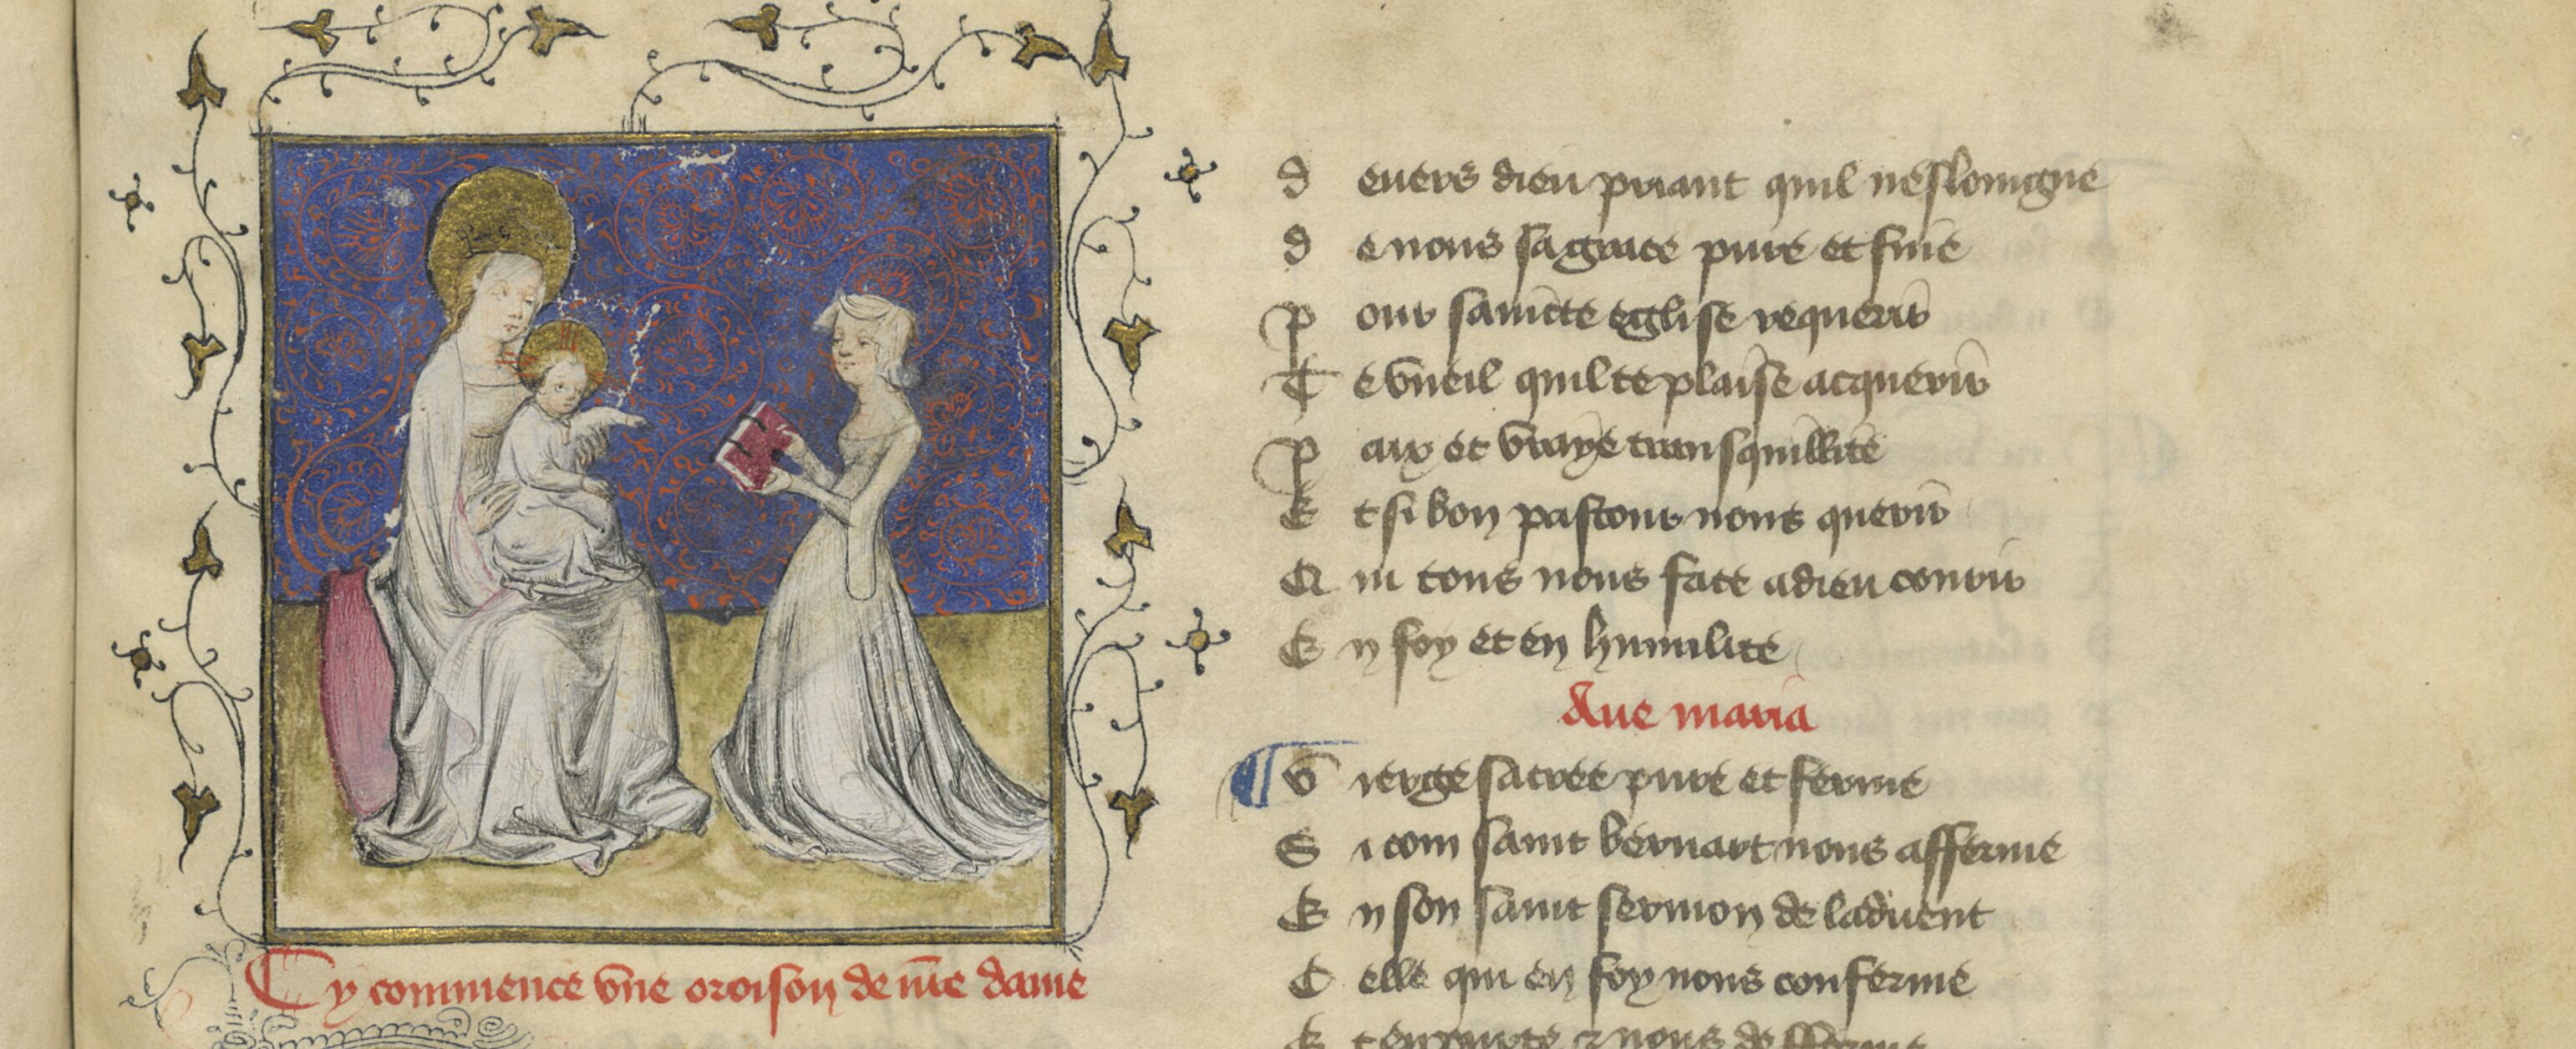 Cy commence vne oroison de nr̄e dame
d euers dieu priant quil neslongne
d e nous sa grace pure et fine
P our saincte eglise requerir
T e vueil quil te plaise acquerir
P aix et vraye transquillite
E t si bon pastour nous querir
Q ui tous nous face a dieu courir
E n foy et en humilite
Aue maria
¶ V ierge sacree pure et ferme
S i com saint bernart nous afferme
E n son saint sermon de laduent
C elle qui en foy nous conferme
E t en purte & nous defferme